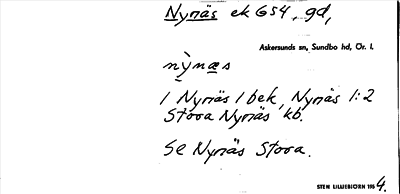 Nynäs ek 654, gd,
Askersunds sn, Sundbo hd, Ör. l.
nỳnæs
1 Nynäs 1 bek, Nynäs 1:2
Stora Nynäs kb.
Se Nynäs Stora.
STEN LILLIEBJÖRN 1954.